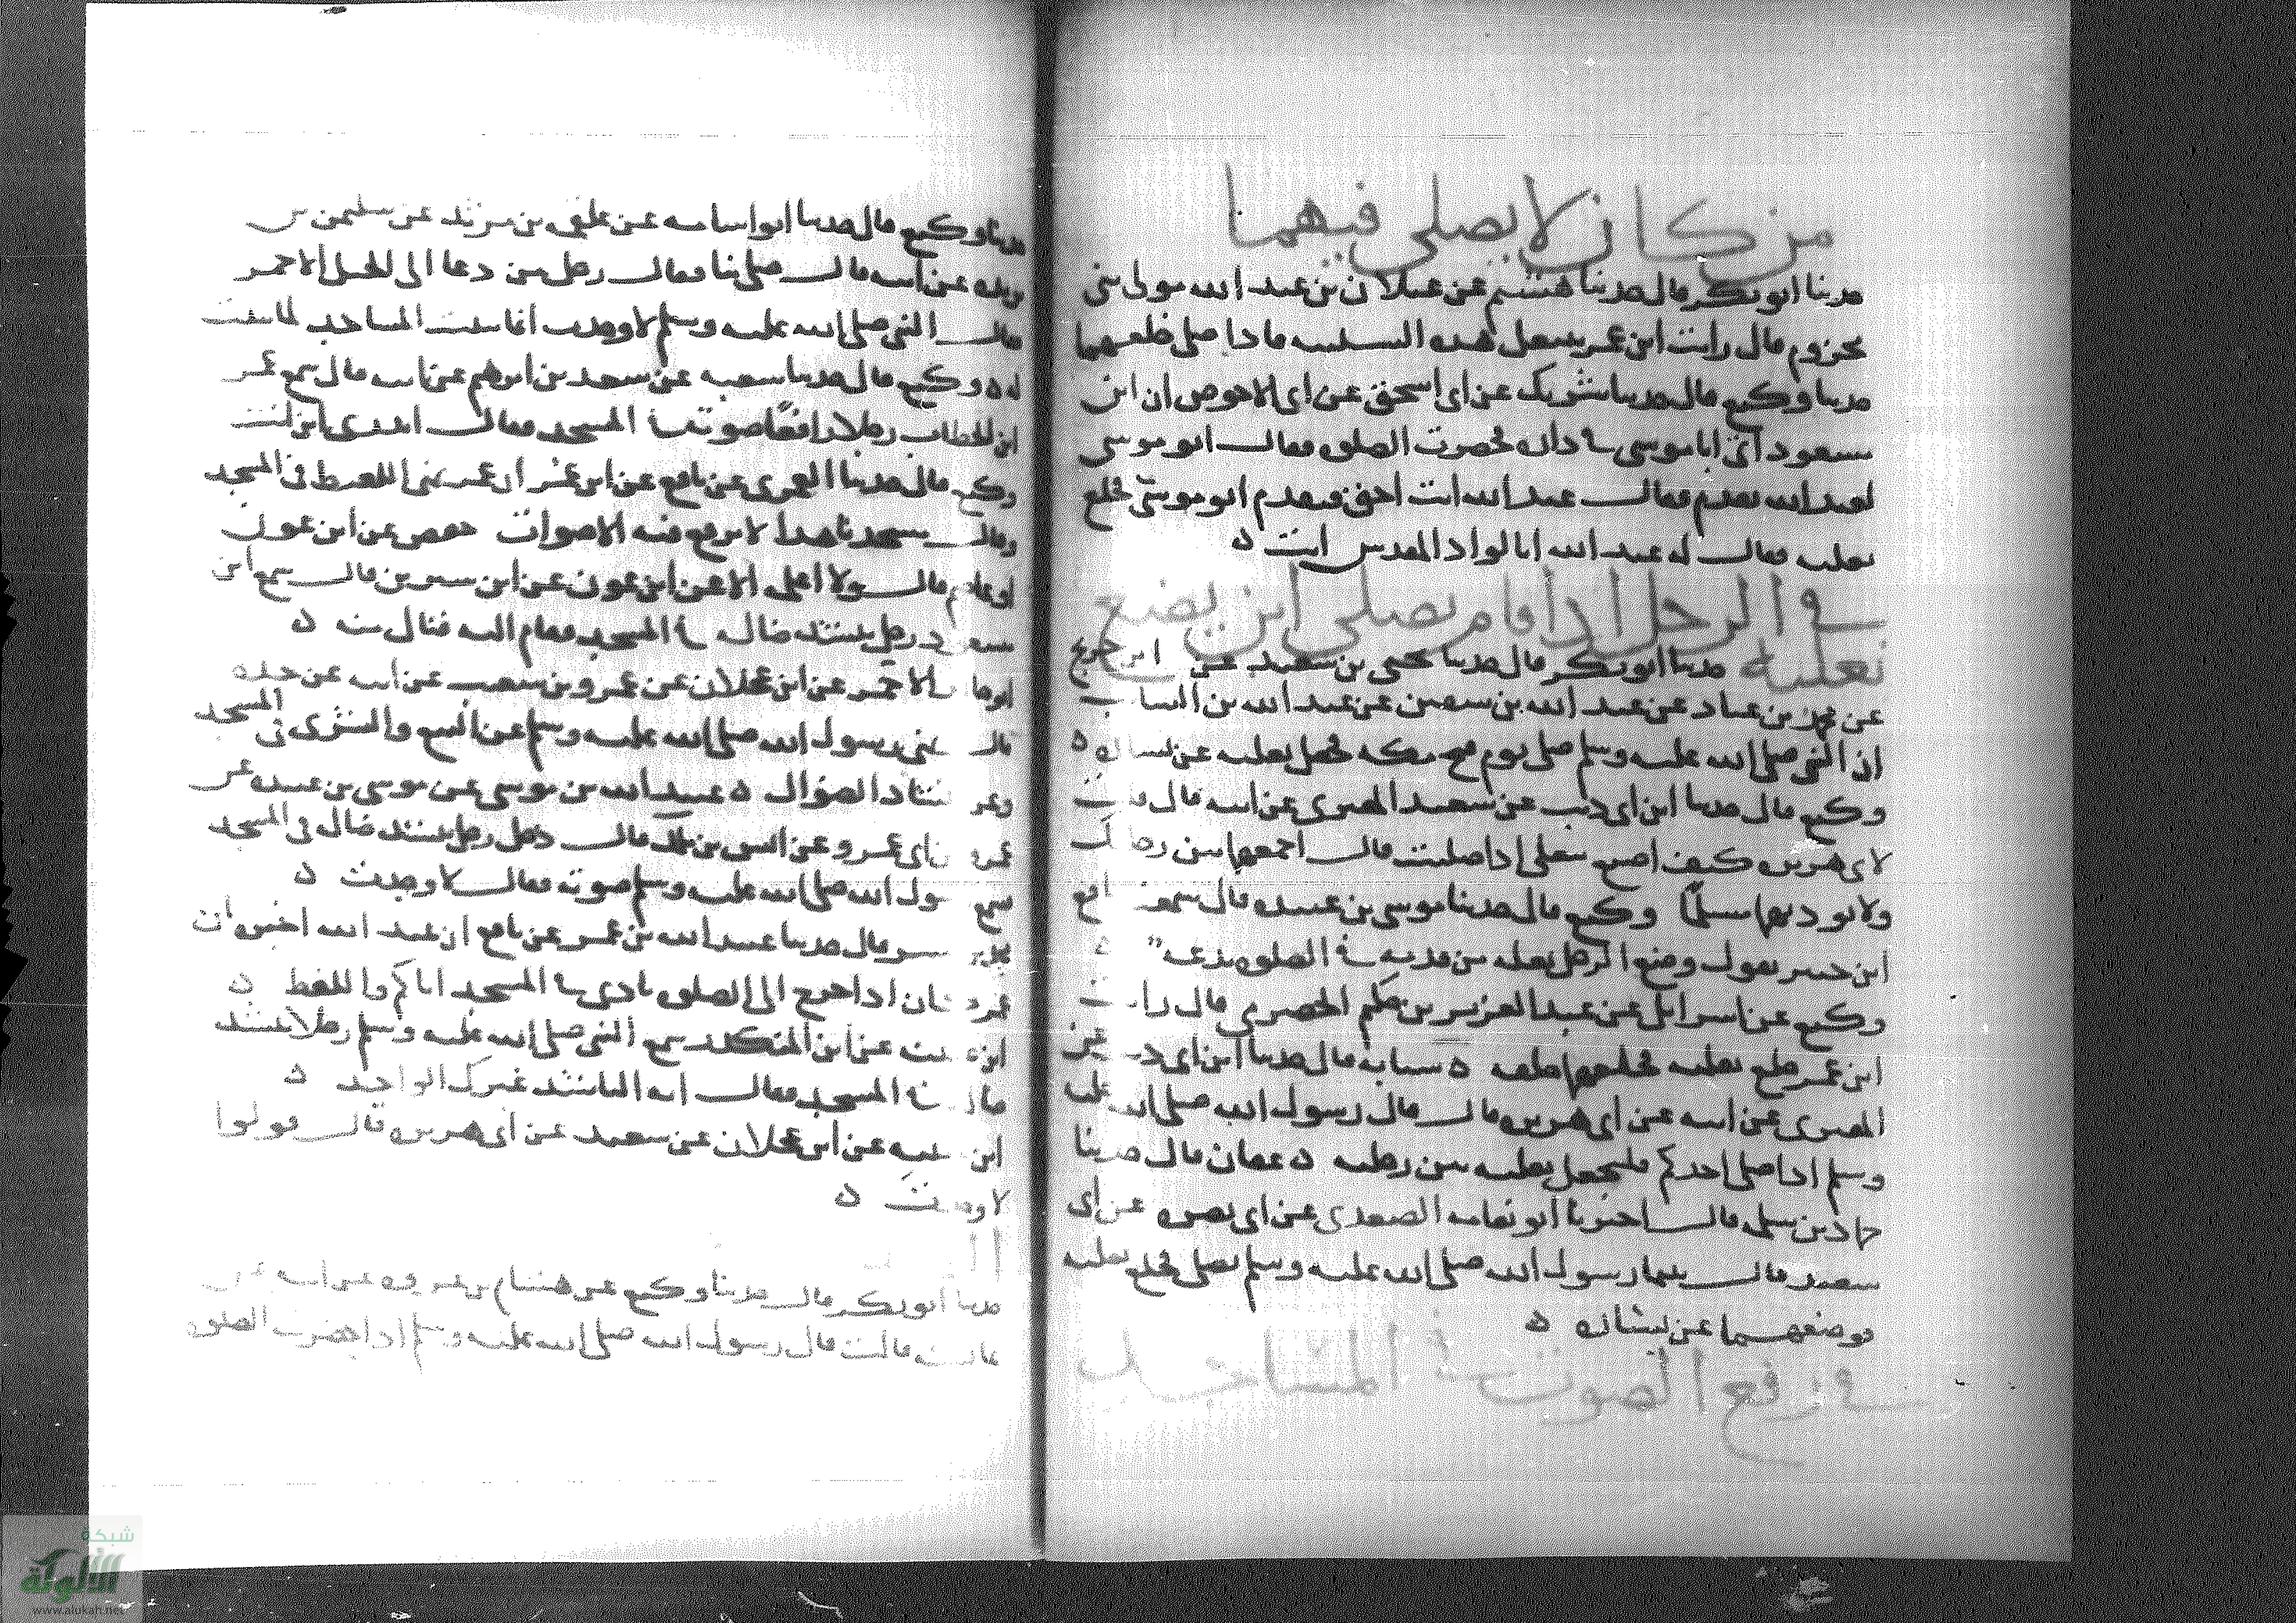 من كان لا يصلي فيهما
حدثنا ابو بكر قال حدثنا هشيم عن غيلان بن عبد الله مولى بني
مخزوم قال رايت ابن عمر يعمل هذه السلسه ما دا صلى خلعهما
حدثنا وكيع قال حدثنا شريك عن ابي اسحق عن ابي الاحوص ان ابن
مسعود اتى ابا موسى في داره فحضرت الصلوه فقال ابو موسى
لعبد الله تقدم فقال عبد الله انت احق فتقدم ابو موسى فخلع
نعليه فقال له عبد الله ابالواد المقدس انت ه
في الرجل اذا قام يصلي اين يضع
نعليه حدثنا ابو بكر قال حدثنا يحيى بن سعيد عن ابن جريج
عن محمد بن عباد عن عبد الله بن سفين عن عبد الله بن السايب
ان النبي صلى الله عليه وسلم صلى يوم فتح مكه فجعل نعليه عن يساره ه
وكيع قال حدثنا ابن ابي ذيب عن سعيد المقبري عن ابيه قال قلت
لابي هريره كيف اصنع بنعلي اذا صليت قال اجعلهما بين رجليك
ولا توذ بهما مسلما وكيع قال حدثنا موسى بن عبيده قال سمعت نافع
ابن جبير يقول وضع الرجل نعليه من قدميه في الصلوه بدعه ه
وكيع عن اسرائيل عن عبد العزيز بن حكيم الحضرمي قال رايت
ابن عمر خلع نعليه فجعلهما خلفه ه شبابه قال حدثنا ابن ابي ذيب عن
المقبري عن ابيه عن ابي هريره قال قال رسول الله صلى الله عليه
وسلم اذا صلى احدكم فليجعل نعليه بين رجليه ه عفان قال حدثنا
حماد بن سلمه قال اخبرنا ابو نعامه السعدي عن ابي نضره عن ابي
سعيد قال بينما رسول الله صلى الله عليه وسلم يصلي فخلع نعليه
فوضعهما عن يساره ه
في رفع الصوت في المساجد
حدثنا وكيع قال حدثنا ابو اسامه عن علقمه بن مرثد عن سليمن بن
بريده عن ابيه قال صلى بنا فقال رجل من دعا الى الجمل الاحمر
فقال النبي صلى الله عليه وسلم لا وجدت انما بنيت المساجد لما بنيت
له ه وكيع قال حدثنا شعبه عن سعد بن ابرهيم عن ابيه قال سمع عمر
ابن الخطاب رجلا رافعا صوته في المسجد فقال اتدري اين انت
وكيع قال حدثنا العمري عن نافع عن ابن عمر ان عمر نهى اللغط في المسجد
وقال مسجدنا هذا لا يرفع فيه الاصوات حفص عن ابن عون
قال ولا اعلم الا عن ابن عون عن ابن سيرين قال سمع ابن
مسعود رجل ينشد ضاله في المسجد فقام اليه فنال منه ه
ابو خالد الاحمر عن ابن عجلان عن عمرو بن شعيب عن ابيه عن جده
قال نهى رسول الله صلى الله عليه وسلم عن البيع والشرى في المسجد
وعن انشاد الضوال ه عبيد الله بن موسى عن موسى بن عبيده عن
عمرو بن ابي عمرو عن انس بن ملك قال دخل رجل ينشد ضاله في المسجد
فسمع رسول الله صلى الله عليه وسلم صوته فقال لا وجدت ه
محمد بن بشر قال حدثنا عبيد الله بن عمر عن نافع ان عبد الله اخبره ان
عمر كان اذا خرج الى الصلوه نادى في المسجد اياكم واللغط ه
ابن عيينه عن ابن المنكدر سمع النبي صلى الله عليه وسلم رجلا ينشد
ضاله في المسجد فقال ايها الناشد غيرك الواجد ه
ابن عيينه عن ابن عجلان عن سعيد عن ابي هريره قال قولوا
لا وجدت ه
حدثنا ابو بكر قال حدثنا وكيع عن هشام بن عروه عن ابيه عن
عايشه قالت قال رسول الله صلى الله عليه وسلم اذا حضرت الصلوه
شبكة
الألوكة
www.alukah.net